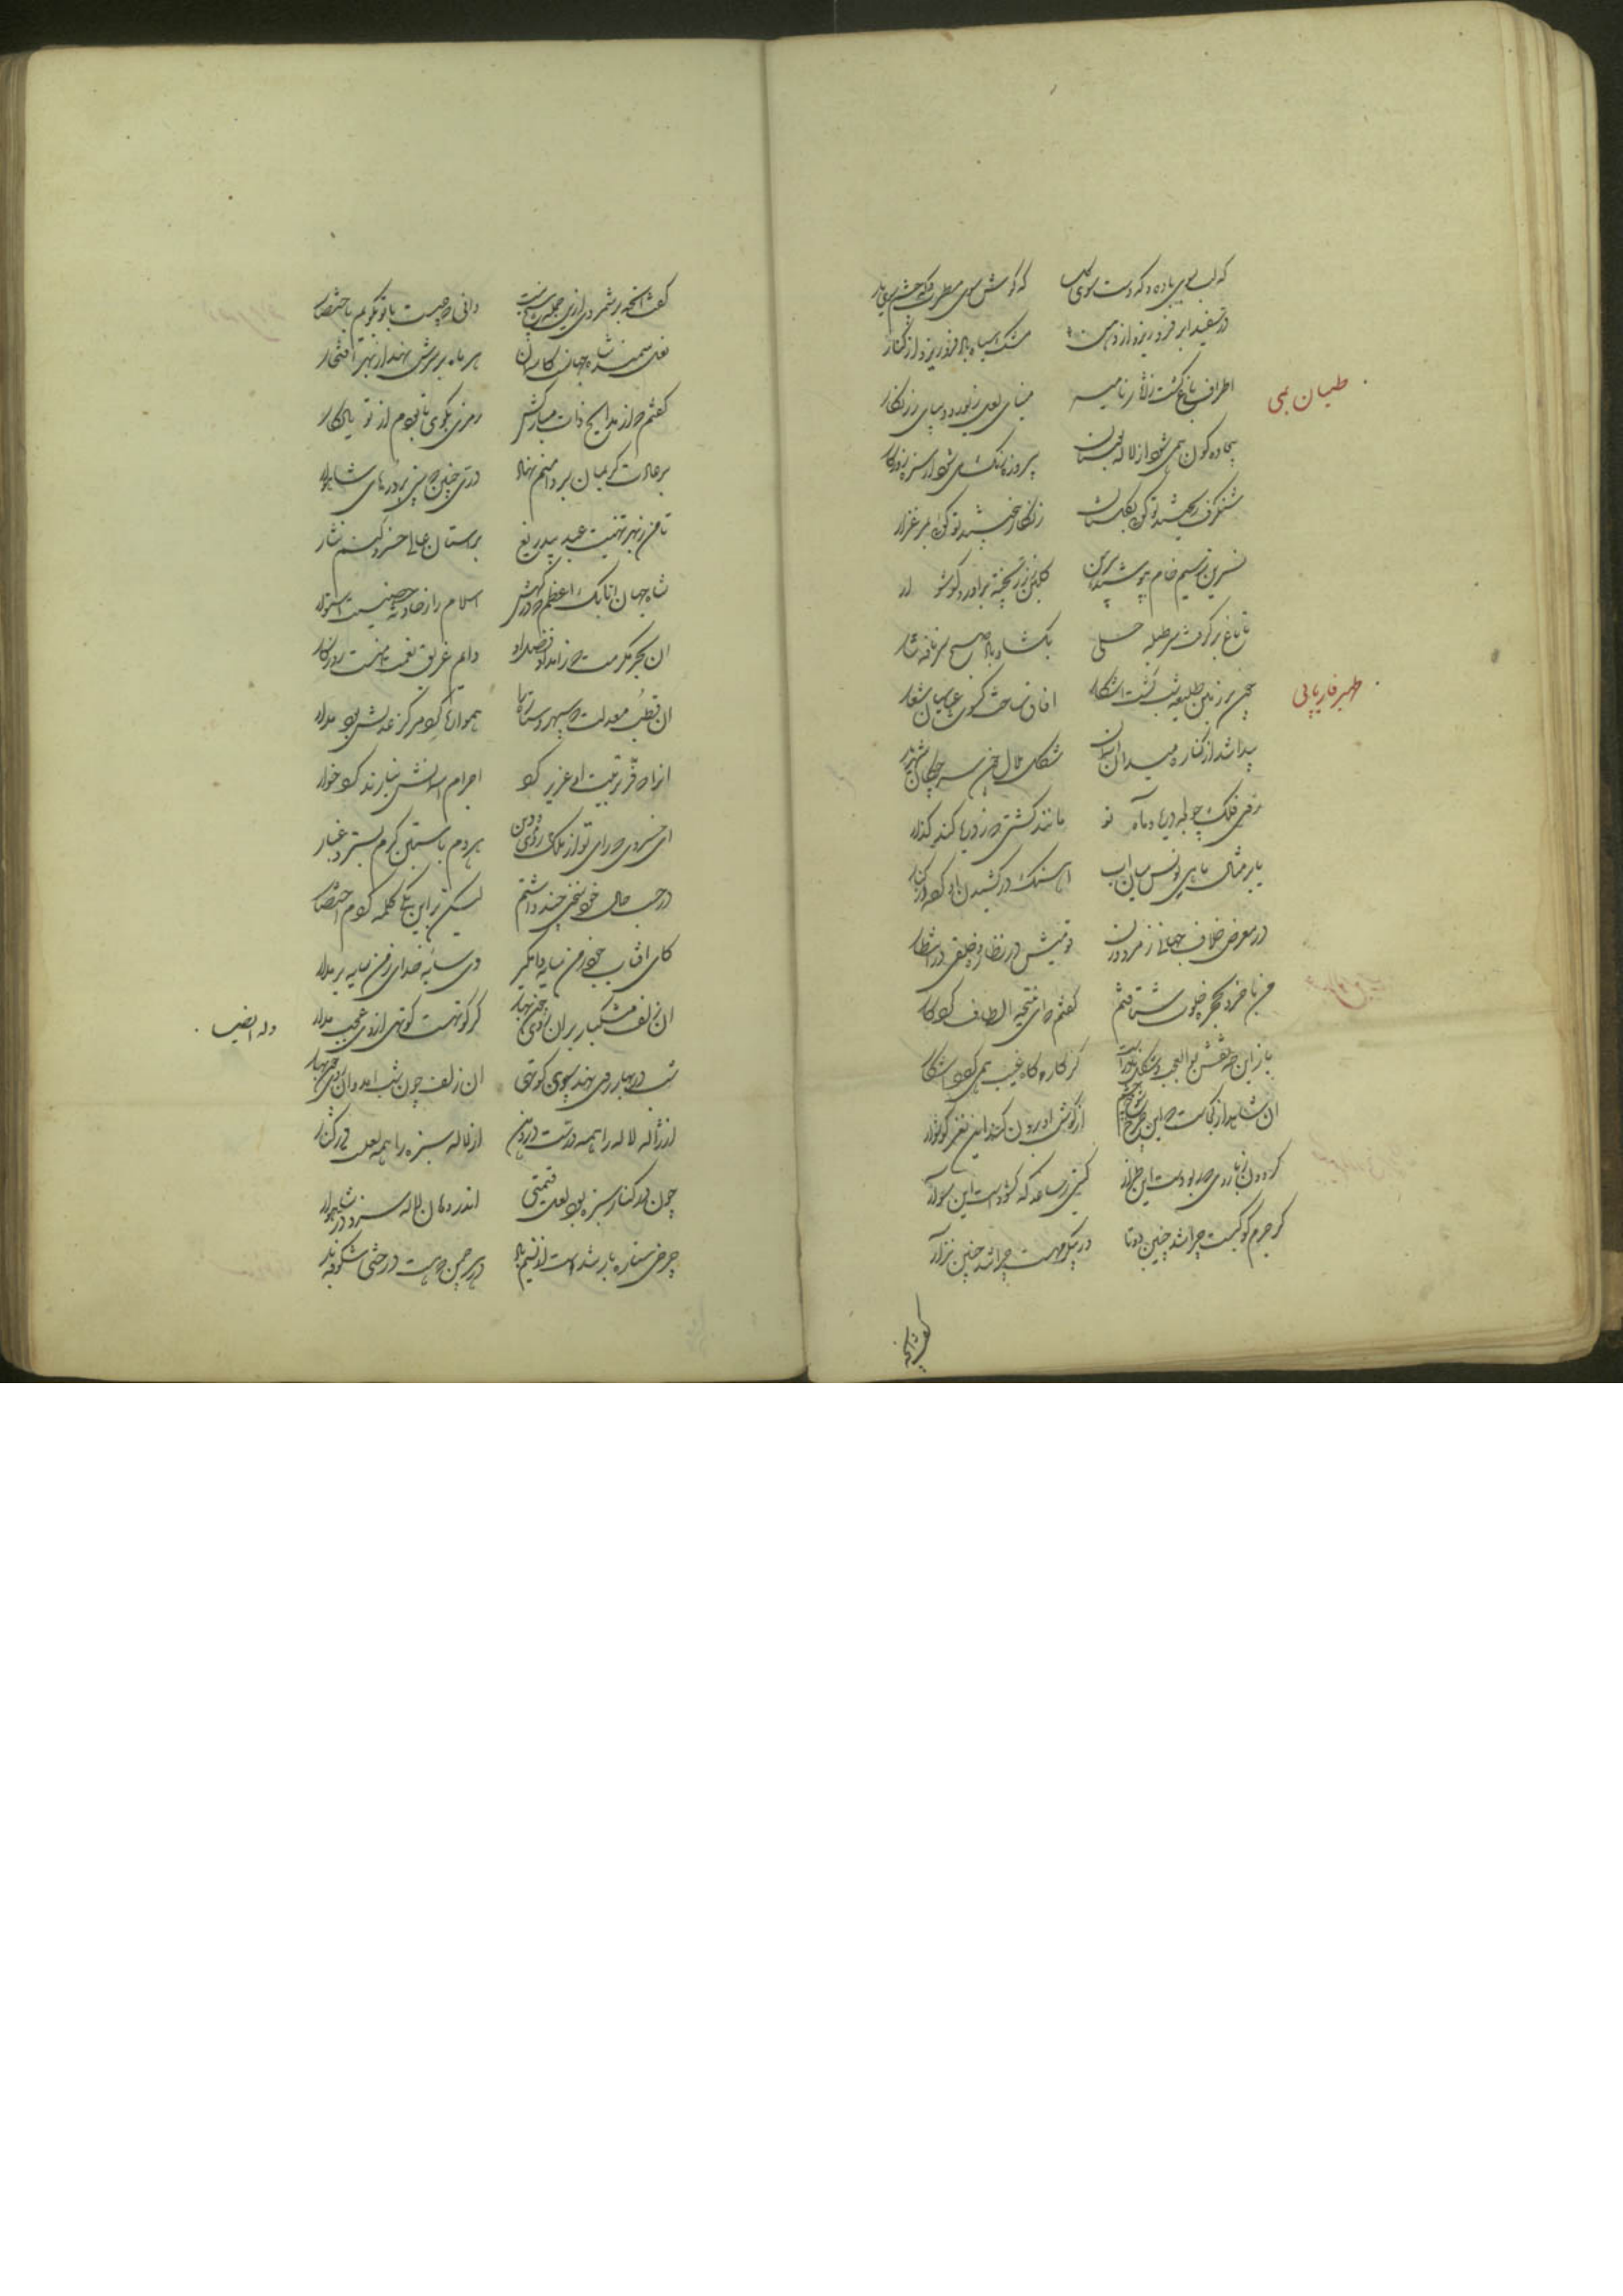 که لب سوی باده و که دست سوی کل که کوش سوی مطرب و که چشم سوی یار
در سفید ابر فرو ریزد از دهن مشک سیاه باد فرو ریزد از کنار
طیان بمی
اطراف باغ کشت ز آثار نامیه مینای لعل زیور و دیبای زر نکار
بیجاده کون همی شود از لاله بوستان پیروزه رنک می شود از سبزه جویبار
شنکرف بیخته‌اند تو کویی بکلستان زنکار ریخته‌اند تو کویی بمرغزار
نسرین ز سیم خام بپوشید پیرهن کلبن ز زر پخته برآورد کوشوار
تا باغ بر کرفت سر طبله حلی بکشاد باد صبح سر نافه تتار
ظهیر فاریابی
چون بر زمین طلیعه شب کشت اشکار افاق ساخت کسوت عباسیان شعار
پیدا شد از کناره میدان اسمان شکل هلال چون سر چوکان شهریار
دیدم ز زر پخته
روی فلک چو لجه دریا و ماه نو مانند کشتی که ز دریا کند کذار
یا بر مثال ماهی یونس میان اب اهنک در کشیدن او کرده در کنار
در معرض خلاف جهانی ز مرد و زن قومیش در نظاره و خلقی در انتظار
من با خرد بحجره خلوت شتافتم کفتم که ای نتیجه الطاف کردکار
باز این چه نقش بوالعجب و شکل نادر است کز کارگاه غیب همی کردد اشکار
ان شاهد از کجاست که این چرخ شوخ چشم از کوش او برون کند این نغز کوشوار
کردون ز بازوی که ربودست این طراز کیتی ز ساعد که کشودست این سوار
کر جرم کوکبست چرا شد چنین دوتا در پیکر مهست چرا شد چنین نزار
کفت انچه
کفت انچه بر شمردی ازین جمله هیچ نیست دانی که چیست با تو بکویم باختصار
نعل سمند شاه جهان کاسمان هر ماه بر سرش نهد از بهر افتخار
کفتم که از مدایح ذات مبارکش رمزی بکوی تا بودم از تو یادکار
بر عادت کریمان بر دامنم نهاد دری چنین که بینی پر درهای شاهوار
تا من ز بهر تهنیت عید بیدریغ بر استان عالی خسرو کنم نثار
شاه جهان اتابک اعظم که درکهش اسلام را ز حادثه حصنیست استوار
ان بحر مکرمت که ز امداد فضل او دایم غریق نعمت و منت روزکار
ان قطب معدلت که سپهر و ستاره را هموار کرد مرکز عدلش بود مدار
انرا که فر تربیت او عزیز کرد اجرام اسمانش نیارند کرد خوار
ای خسروی که رای تو از ملک روی دین هر دم باستین کرم بسترد غبار
در حسب حال خود سخنی چند داشتم لیکن بر این یکی کلمه کردم اختصار
کای افتاب جود ز من سایه وامکیر وی سایه خدای ز من سایه بر مدار
وله ایضا
ان زلف مشکبار بران روی چون بهار کر کوتهست کوتهی ازوی عجب مدار
شب در بهار روی نهد سوی کوتهی ان زلف چون شب امد و ان روی چون بهار
از ژاله لاله را همه درست در دهن از لاله سبزه را همه لعل در کنار
چون در کنار سبزه بود لعل قیمتی اندر دهان لاله سزد در شاهوار
چرخی ستاره بار شدست از نسیم باد در هر چمن که هست درختی شکوفه‌دار